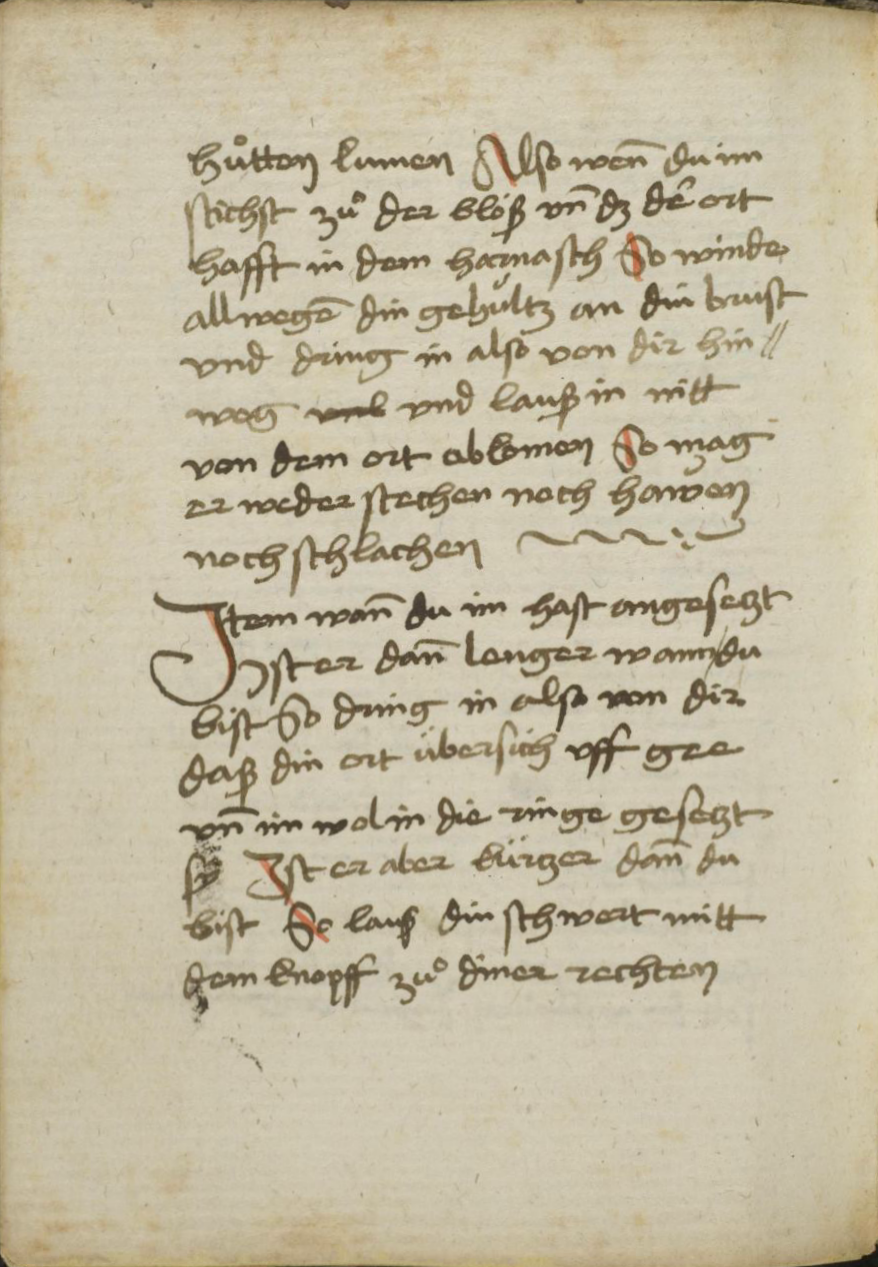 hůtten kumen Also weñ du im
stichst zů der blöß vñ dz dē ort
hafft in dem harnasch So winde
allwegē din gehültz an din brust
vnd dring in also von dir hin //
weg vnd lauß in nitt
von dem ort abkomen So mag
er weder stechen noch hawen
noch schlachen
Item wañ du im hast angesetzt
Ist er dañ lenger wann du
bist So dring in also von dir
daß din ort übersich vff gee
vñ im wol in die ringe gesetzt
sy Ist er aber kürtzer dañ du
bist So lauß din schwert mitt
dem knopff zů diner rechten